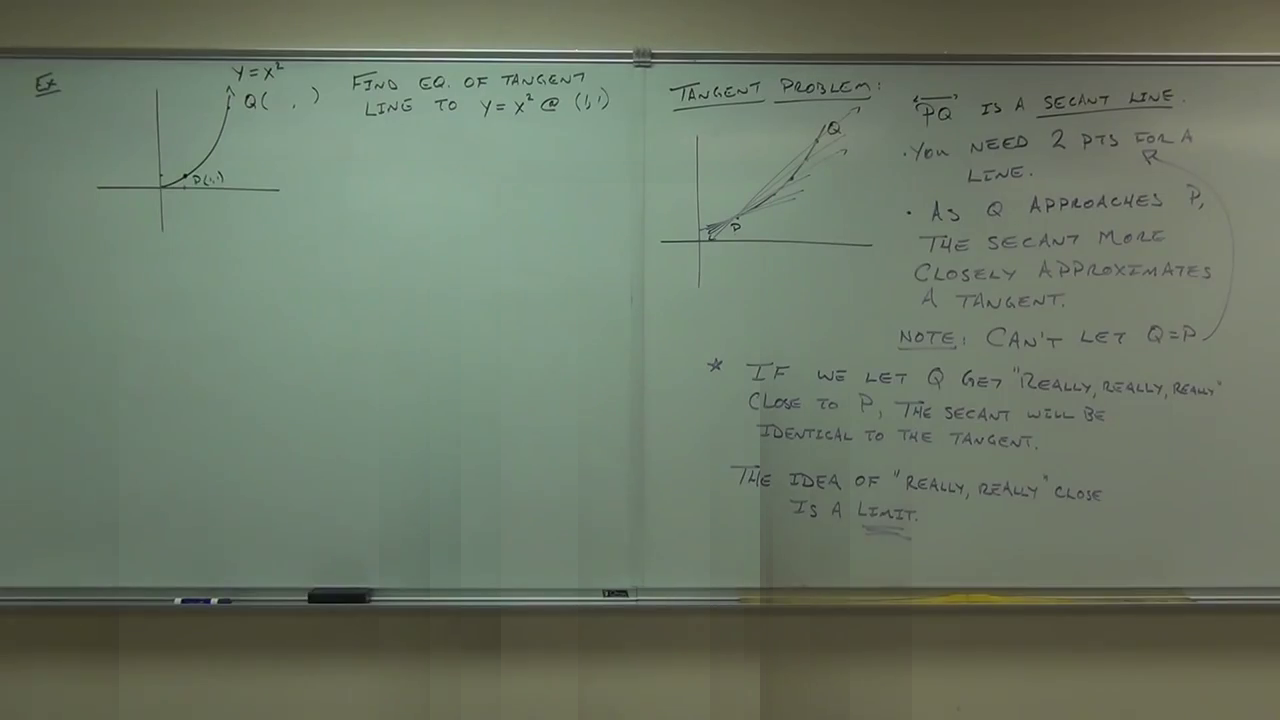 Ex
Y = X²
Q( , )
P(1,1)
FIND EQ. OF TANGENT
LINE TO Y = X² @ (1,1)
TANGENT PROBLEM:
Q
P
PQ IS A SECANT LINE.
• YOU NEED 2 PTS FOR A
LINE.
• AS Q APPROACHES P,
THE SECANT MORE
CLOSELY APPROXIMATES
A TANGENT.
NOTE: CAN'T LET Q=P
* IF WE LET Q GET "REALLY, REALLY, REALLY"
CLOSE TO P, THE SECANT WILL BE
IDENTICAL TO THE TANGENT.
THE IDEA OF "REALLY, REALLY" CLOSE
IS A LIMIT.